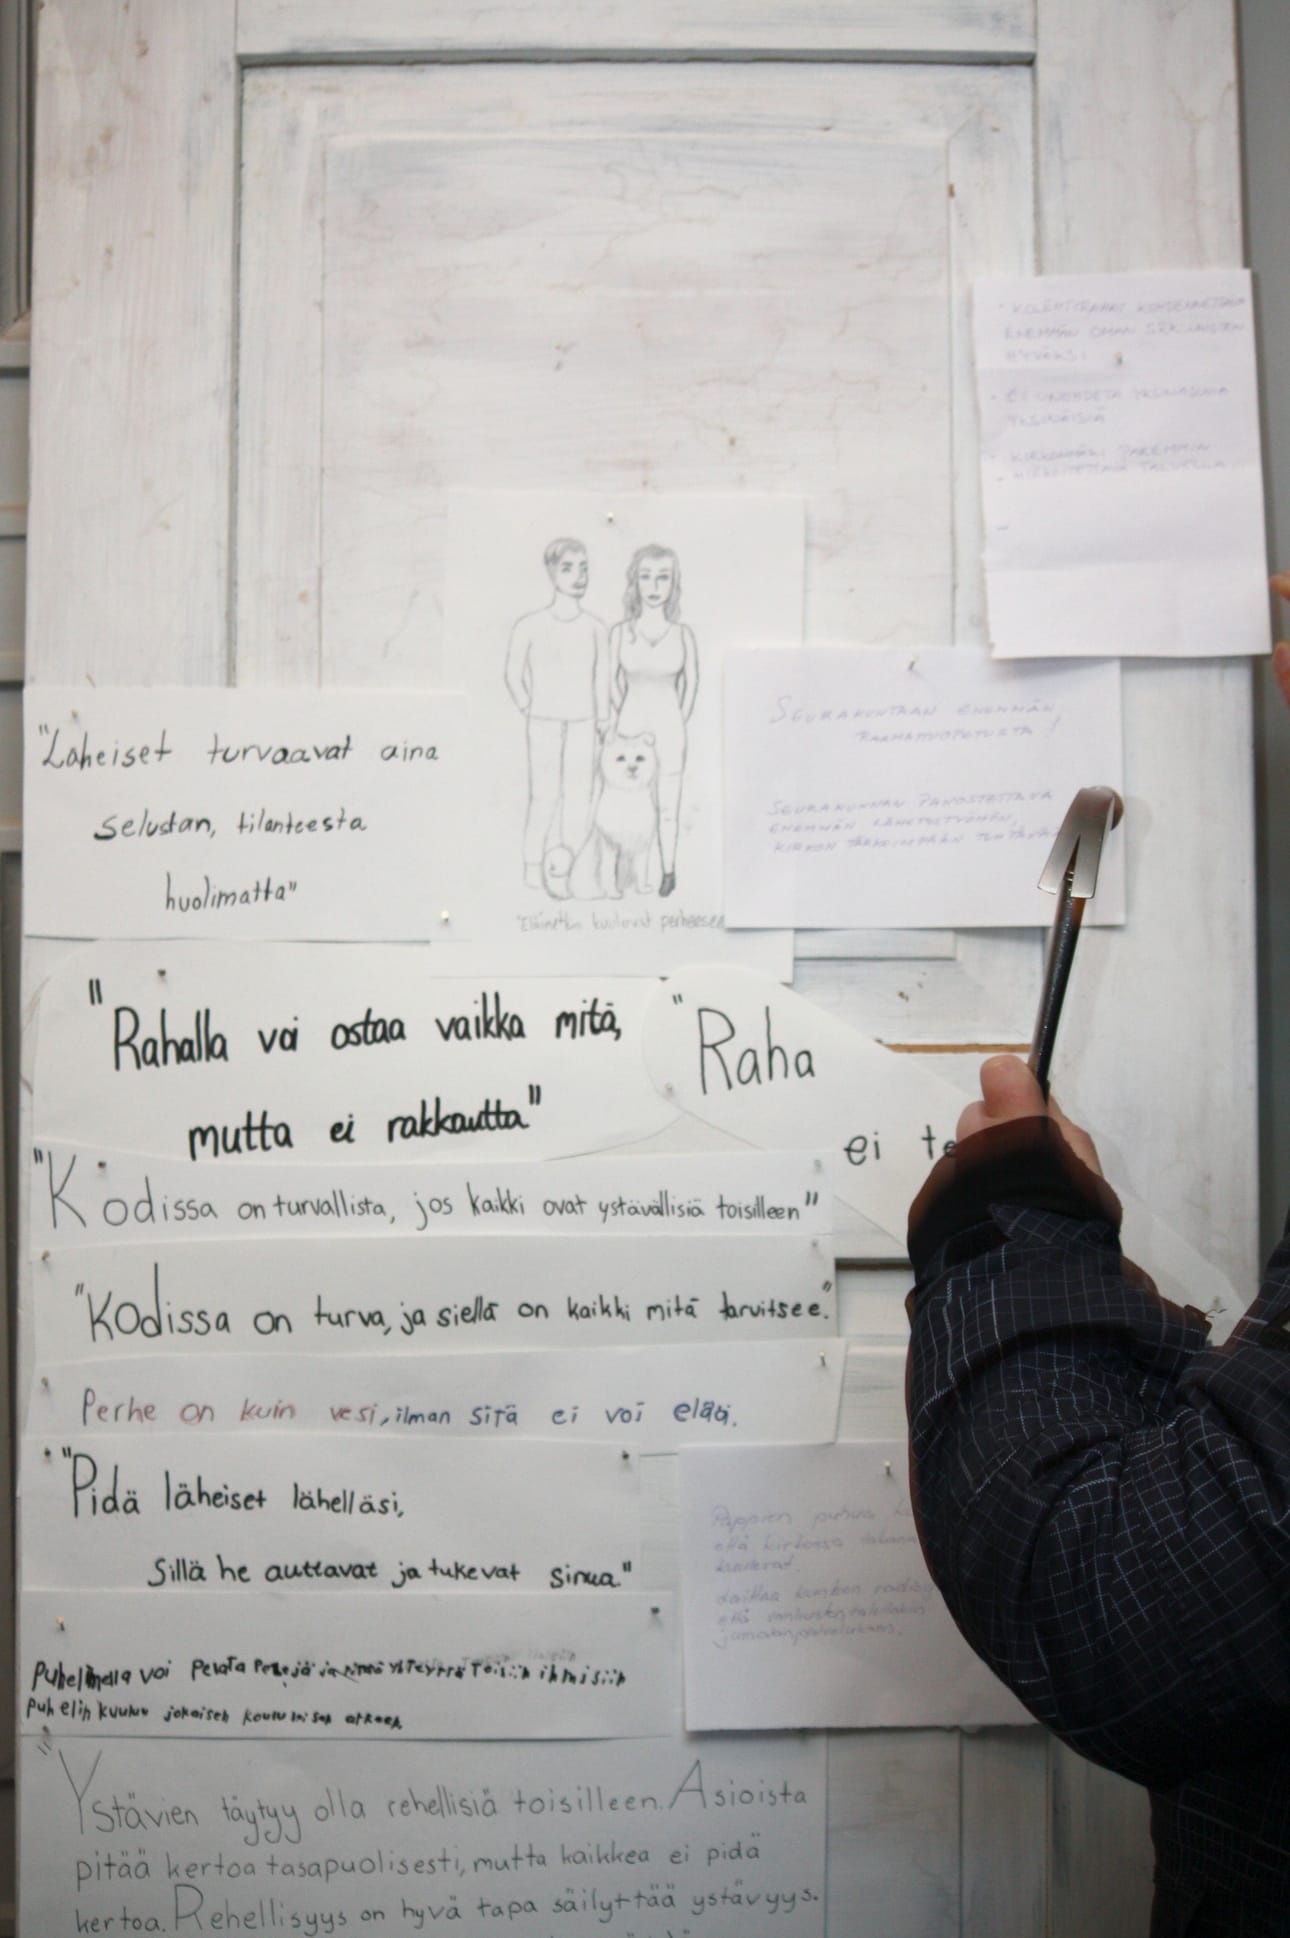 • KOLEHTIRAHAT KOHDENNETTAVA
ENEMMÄN OMAN SRK-LAISTEN
HYVÄKSI
• EI UNOHDETA YKSINASUVIA
YKSINÄISIÄ
• KIRKONMÄKI PAREMMIN
HIEKOITETTAVA TALVELLA
SEURAKUNTAAN ENEMMÄN
RAAMATTUOPETUSTA!
SEURAKUNNAN PANOSTETTAVA
ENEMMÄN LÄHETYSTYÖHÖN,
KIRKON TÄRKEIMPÄÄN TEHTÄVÄÄN
"Läheiset turvaavat aina
selustan, tilanteesta
huolimatta"
"Eläimetkin kuuluvat perheeseen
"Rahalla voi ostaa vaikka mitä,
mutta ei rakkautta"
"Raha
ei te
"Kodissa on turvallista, jos kaikki ovat ystävällisiä toisilleen"
"Kodissa on turva, ja siellä on kaikki mitä tarvitsee."
Perhe on kuin vesi, ilman sitä ei voi elää.
"Pidä läheiset lähelläsi,
Sillä he auttavat ja tukevat sinua."
Pappien puhua
että kirkossa
kuulevat.
Laittaa kirkkoon
että
jumalanpalvelukseen.
Puhelimella voi pelata pelejä ja yhteyttä toisiin ihmisiin
Puhelin kuuluu jokaisen koululaisen arkeen
"Ystävien täytyy olla rehellisiä toisilleen. Asioista
pitää kertoa tasapuolisesti, mutta kaikkea ei pidä
kertoa. Rehellisyys on hyvä tapa säilyttää ystävyys.